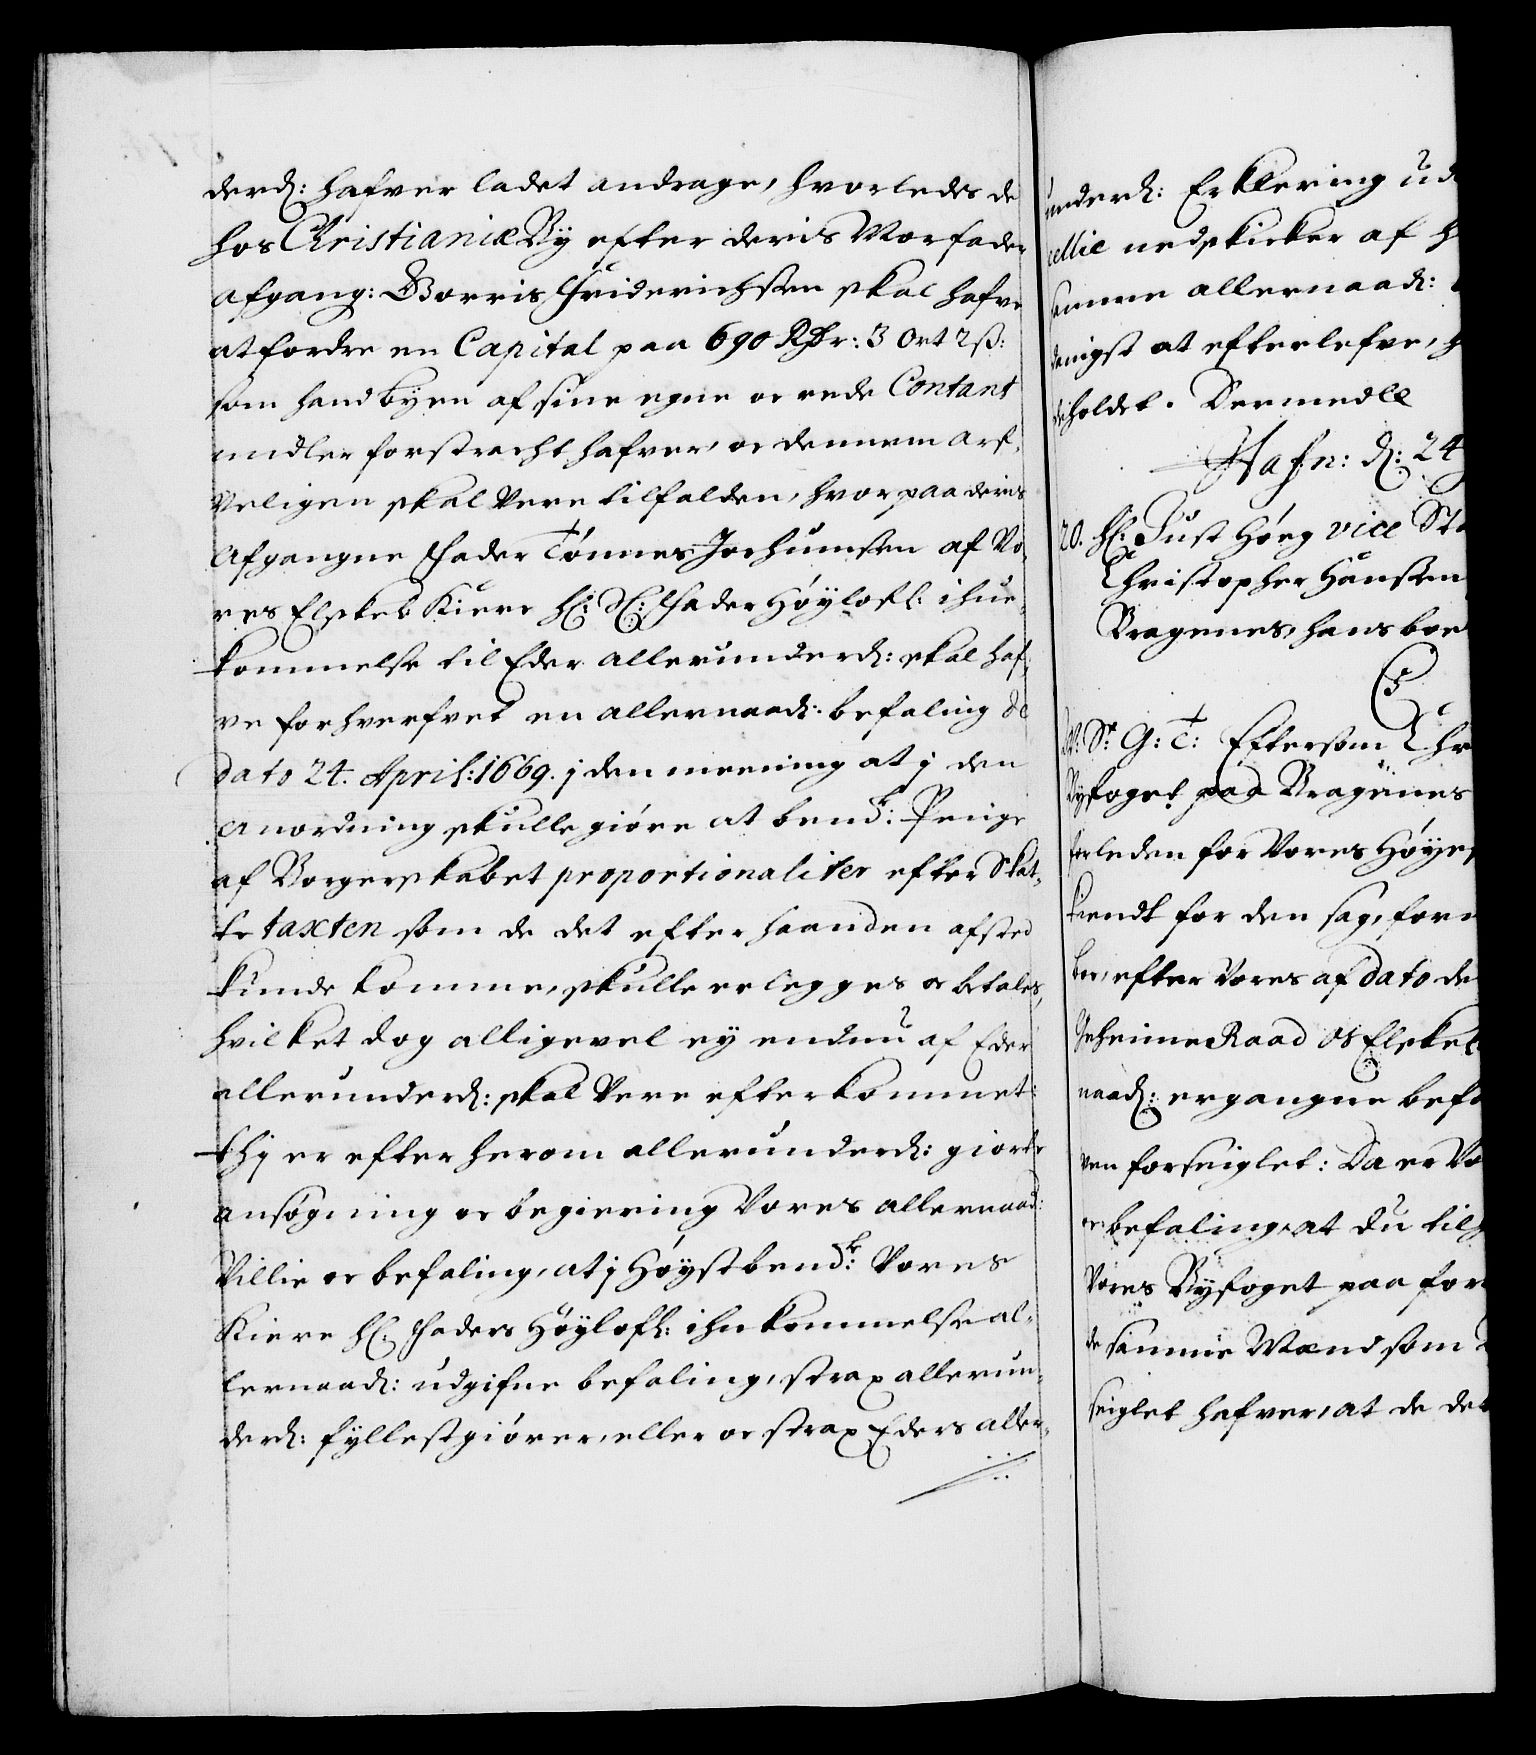 derd: hafver ladet andrage, hvorledes de
hos Christianiæ By efter deris Morfader
afgang: Borris Friderichsen skal hafve
at fordre en Capital paa 690 Rdr: 3 Ort 2 ß:
som hand byen af sine egne oc rede Contant
midler forstracht hafver, oc dennem arf,
veligen skal vere tilfalden, hvor paa deris
afgangne Fader Tønnes Jochumsen af Vo,
res Elskel Kiere H: Fader Høylofl: ihue,
kommelse til Eder allerunderd: skal haf,
ve forhverfvet en allernaad: befaling de
dato 24. April: 1669. j den meening at j den
anordning skulle giøre at bemd: Penge
af Borgerskabet proportionaliter efter Skat,
te taxten som de det efter haanden afsted
kunde komme, skulle erlegges oc betales,
hvilket dog alligevel ey endnu af Eder
allerunderd: skal vere efterkommet:
thj er efter herom allerunderd: giorte
ansøgning oc begiering Vores allernaad:
Villie oc befaling, at j Høystbemd: Vores
Kiere H: Faders Høylofl: ihukommelse al,
lernaad: udgifne befaling, strax allerun,
derd: fyllestgiører, eller oc strax Eders aller,
underd: Erklering ud
cellie nedskicker af h
samme allernaad:
danigst at efterlefve, h
deholdet. Dermedee
Hafn: d: 24
20. H: Just Høeg vice Sta
Christopher Hansen
Bragenes, hans boe
C5
V: S: G: T: Eftersom Chr
Byfoget paa Bragenes
forleden for Vores Høyes
kiendt for den sag, for
efter Vores af dato de
Geheime Raad Os Elskel
naad: ergangne befa
ven forseiglet: Da er Vo
oc befaling, at du til
Vores Byfoget paa for
de samme Mænd som
seiglet hafver, at de det